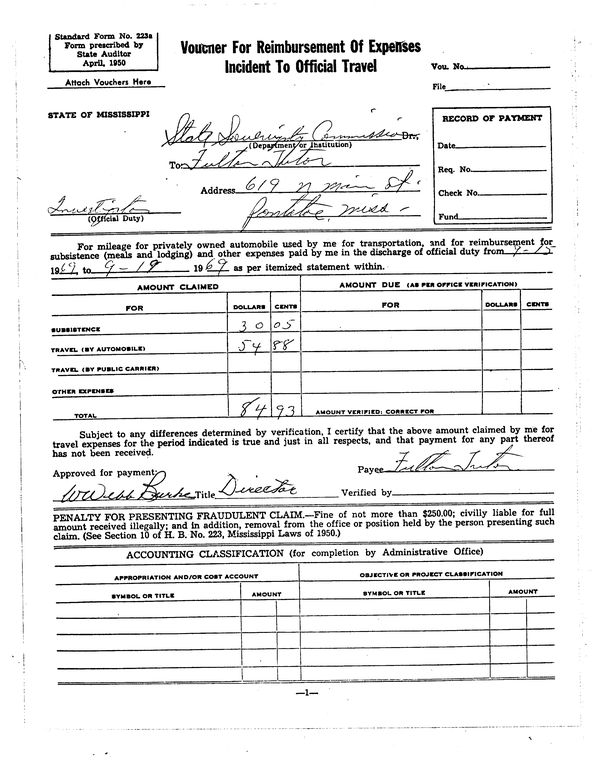 Standard Form No. 223a
Form prescribed by
State Auditor
April, 1950
Attach Vouchers Here
Voucher For Reimbursement Of Expenses
Incident To Official Travel
Vou. No.
File
STATE OF MISSISSIPPI
RECORD OF PAYMENT
Date
Req. No.
Check No.
Fund
State Sovereignty Commission Dr.,
(Department or Institution)
To Fulton Tutor
Address 619 N main St.
Pontotoc, miss -
Investigator
(Official Duty)
For mileage for privately owned automobile used by me for transportation, and for reimbursement for
subsistence (meals and lodging) and other expenses paid by me in the discharge of official duty from 9-15
1969, to 9-19 1969 as per itemized statement within.
AMOUNT CLAIMED
AMOUNT DUE (AS PER OFFICE VERIFICATION)
FOR DOLLARS CENTS FOR DOLLARS CENTS
SUBSISTENCE 30 05
TRAVEL (BY AUTOMOBILE) 54 88
TRAVEL (BY PUBLIC CARRIER)
OTHER EXPENSES
TOTAL 84 93 AMOUNT VERIFIED: CORRECT FOR
Subject to any differences determined by verification, I certify that the above amount claimed by me for
travel expenses for the period indicated is true and just in all respects, and that payment for any part thereof
has not been received.
Payee Fulton Tutor
Approved for payment:
W Webb Burke Title Director Verified by
PENALTY FOR PRESENTING FRAUDULENT CLAIM.—Fine of not more than $250.00; civilly liable for full
amount received illegally; and in addition, removal from the office or position held by the person presenting such
claim. (See Section 10 of H. B. No. 223, Mississippi Laws of 1950.)
ACCOUNTING CLASSIFICATION (for completion by Administrative Office)
APPROPRIATION AND/OR COST ACCOUNT OBJECTIVE OR PROJECT CLASSIFICATION
SYMBOL OR TITLE AMOUNT SYMBOL OR TITLE AMOUNT
—1—